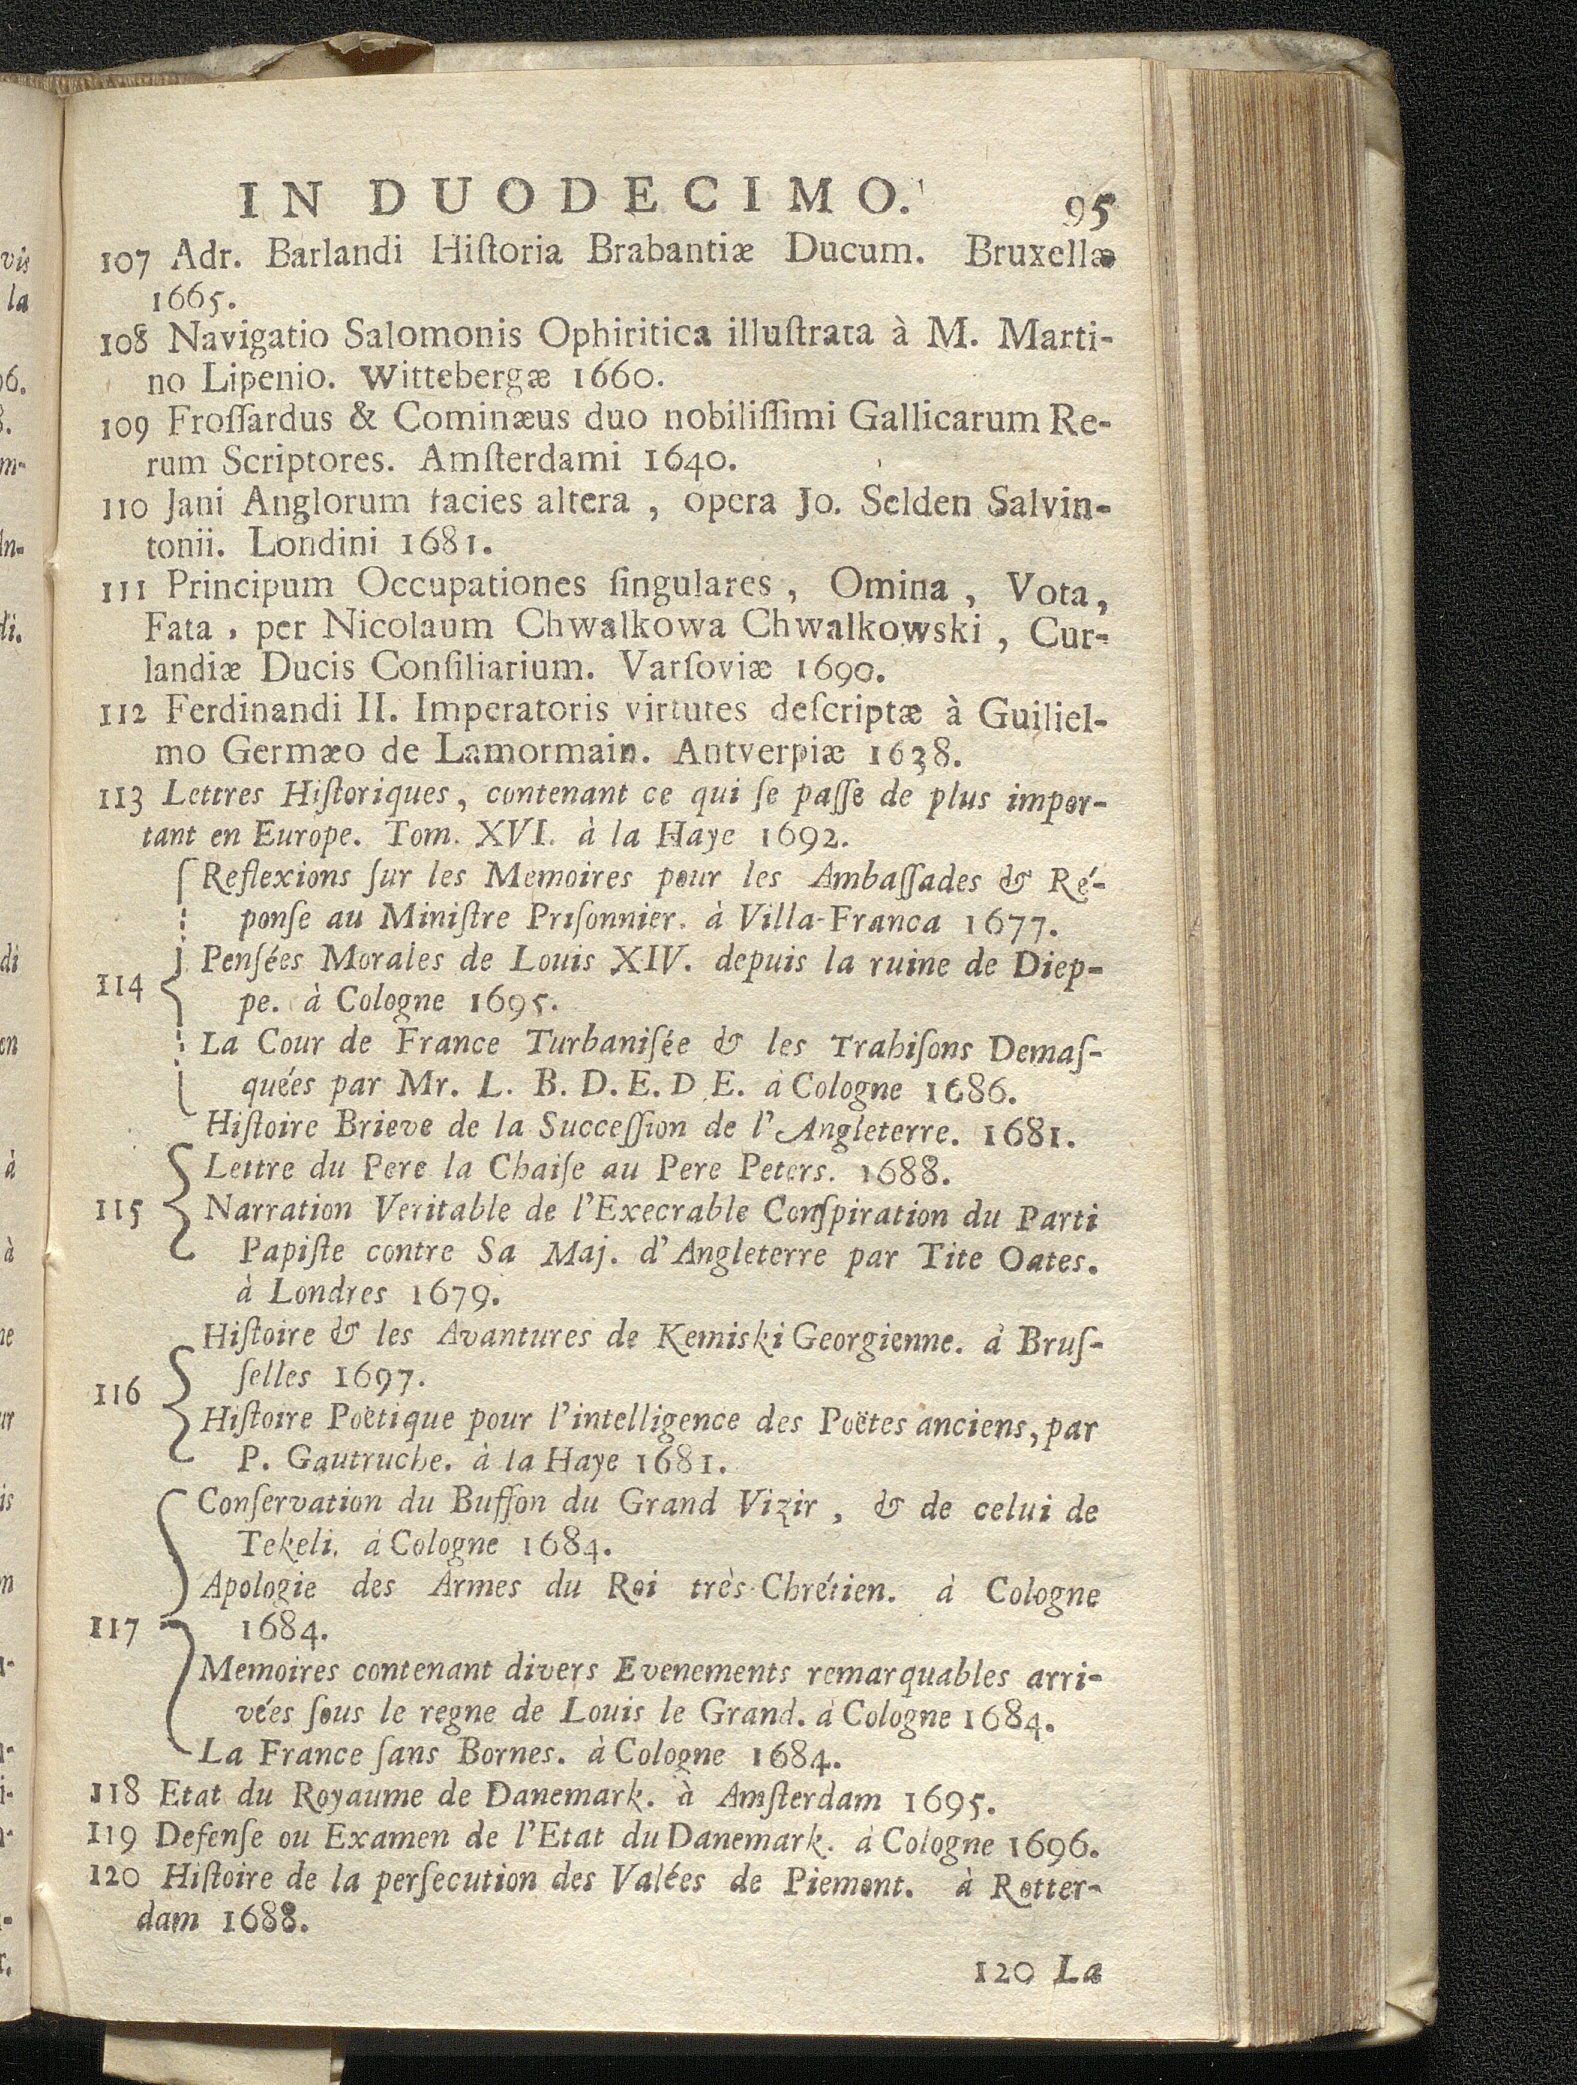 IN DUODECIMO. 95
107 Adr. Barlandi Hiſtoria Brabantiæ Ducum. Bruxellæ
1665.
108 Navigatio Salomonis Ophiritica illuſtrata à M. Marti-
no Lipenio. Wittebergæ 1660.
109 Froſſardus & Cominæus duo nobiliſſimi Gallicarum Re-
rum Scriptores. Amſterdami 1640.
110 Jani Anglorum facies altera, opera Jo. Selden Salvin-
tonii. Londini 1681.
111 Principum Occupationes ſingulares, Omina, Vota,
Fata, per Nicolaum Chwalkowa Chwalkowski, Cur-
landiæ Ducis Conſiliarium. Varſoviæ 1690.
112 Ferdinandi II. Imperatoris virtutes deſcriptæ à Guiliel-
mo Germæo de Lamormain. Antverpiæ 1638.
113 Lettres Hiſtoriques, contenant ce qui ſe paſſe de plus impor-
tant en Europe. Tom. XVI. à la Haye 1692.
Reflexions ſur les Memoires pour les Ambaſſades & Ré-
ponſe au Miniſtre Priſonnier. à Villa-Franca 1677.
Penſées Morales de Louis XIV. depuis la ruine de Diep-
114
pe. à Cologne 1695.
La Cour de France Turbaniſée & les Trahiſons Demaſ-
quées par Mr. L. B. D. E. D. E. à Cologne 1686.
Hiſtoire Brieve de la Succeſſion de l'Angleterre. 1681.
Lettre du Pere la Chaiſe au Pere Peters. 1688.
115 Narration Veritable de l'Execrable Conſpiration du Parti
Papiſte contre Sa Maj. d'Angleterre par Tite Oates.
à Londres 1679.
Hiſtoire & les Avantures de Kemiski Georgienne. à Bruſ-
ſelles 1697.
116
Hiſtoire Poëtique pour l'intelligence des Poëtes anciens, par
P. Gautruche. à la Haye 1681.
Conſervation du Buffon du Grand Vizir, & de celui de
Tekeli. à Cologne 1684.
Apologie des Armes du Roi très-Chrétien. à Cologne
117 1684.
Memoires contenant divers Evenements remarquables arri-
vées ſous le regne de Louis le Grand. à Cologne 1684.
La France ſans Bornes. à Cologne 1684.
118 Etat du Royaume de Danemark. à Amſterdam 1695.
119 Defenſe ou Examen de l'Etat du Danemark. à Cologne 1696.
120 Hiſtoire de la perſecution des Valées de Piemont. à Rotter-
dam 1688.
120 La